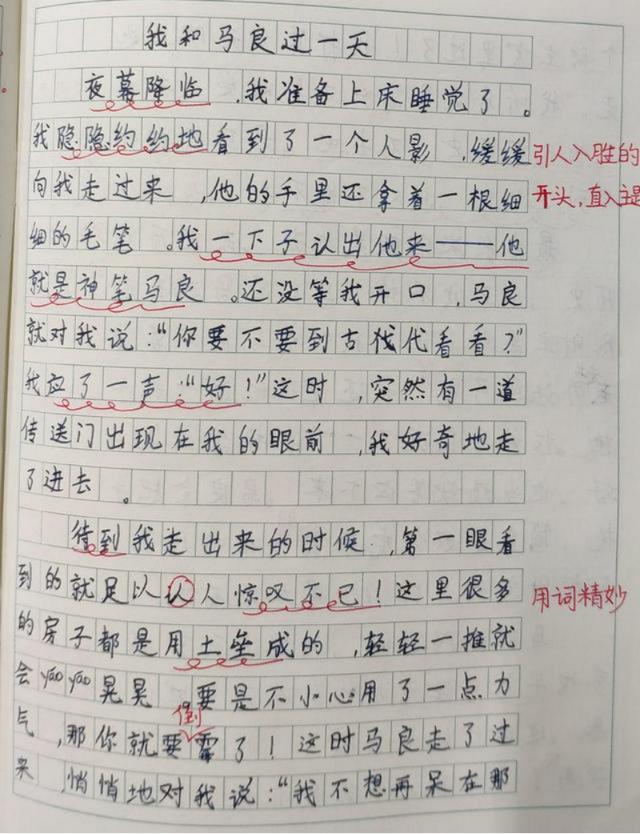 我和马良过一天
夜幕降临,我准备上床睡觉了。
我隐隐约约地看到了一个人影,缓缓
引人入胜的
向我走过来,他的手里还拿着一根细
开头,直入主题
细的毛笔。我一下子认出他来——他
就是神笔马良。还没等我开口,马良
就对我说:“你要不要到古代看看?”
我应了一声:“好!”这时,突然有一道
传送门出现在我的眼前,我好奇地走
了进去。
待到我走出来的时候,第一眼看
到的就足以认人惊叹不已!这里很多
用词精妙
的房子都是用土垒成的,轻轻一推就
会yáo yáo晃晃 要是不小心用了一点力
倒
气,那你就要了!这时马良走了过
来 悄悄地对我说:“我不想再呆在那